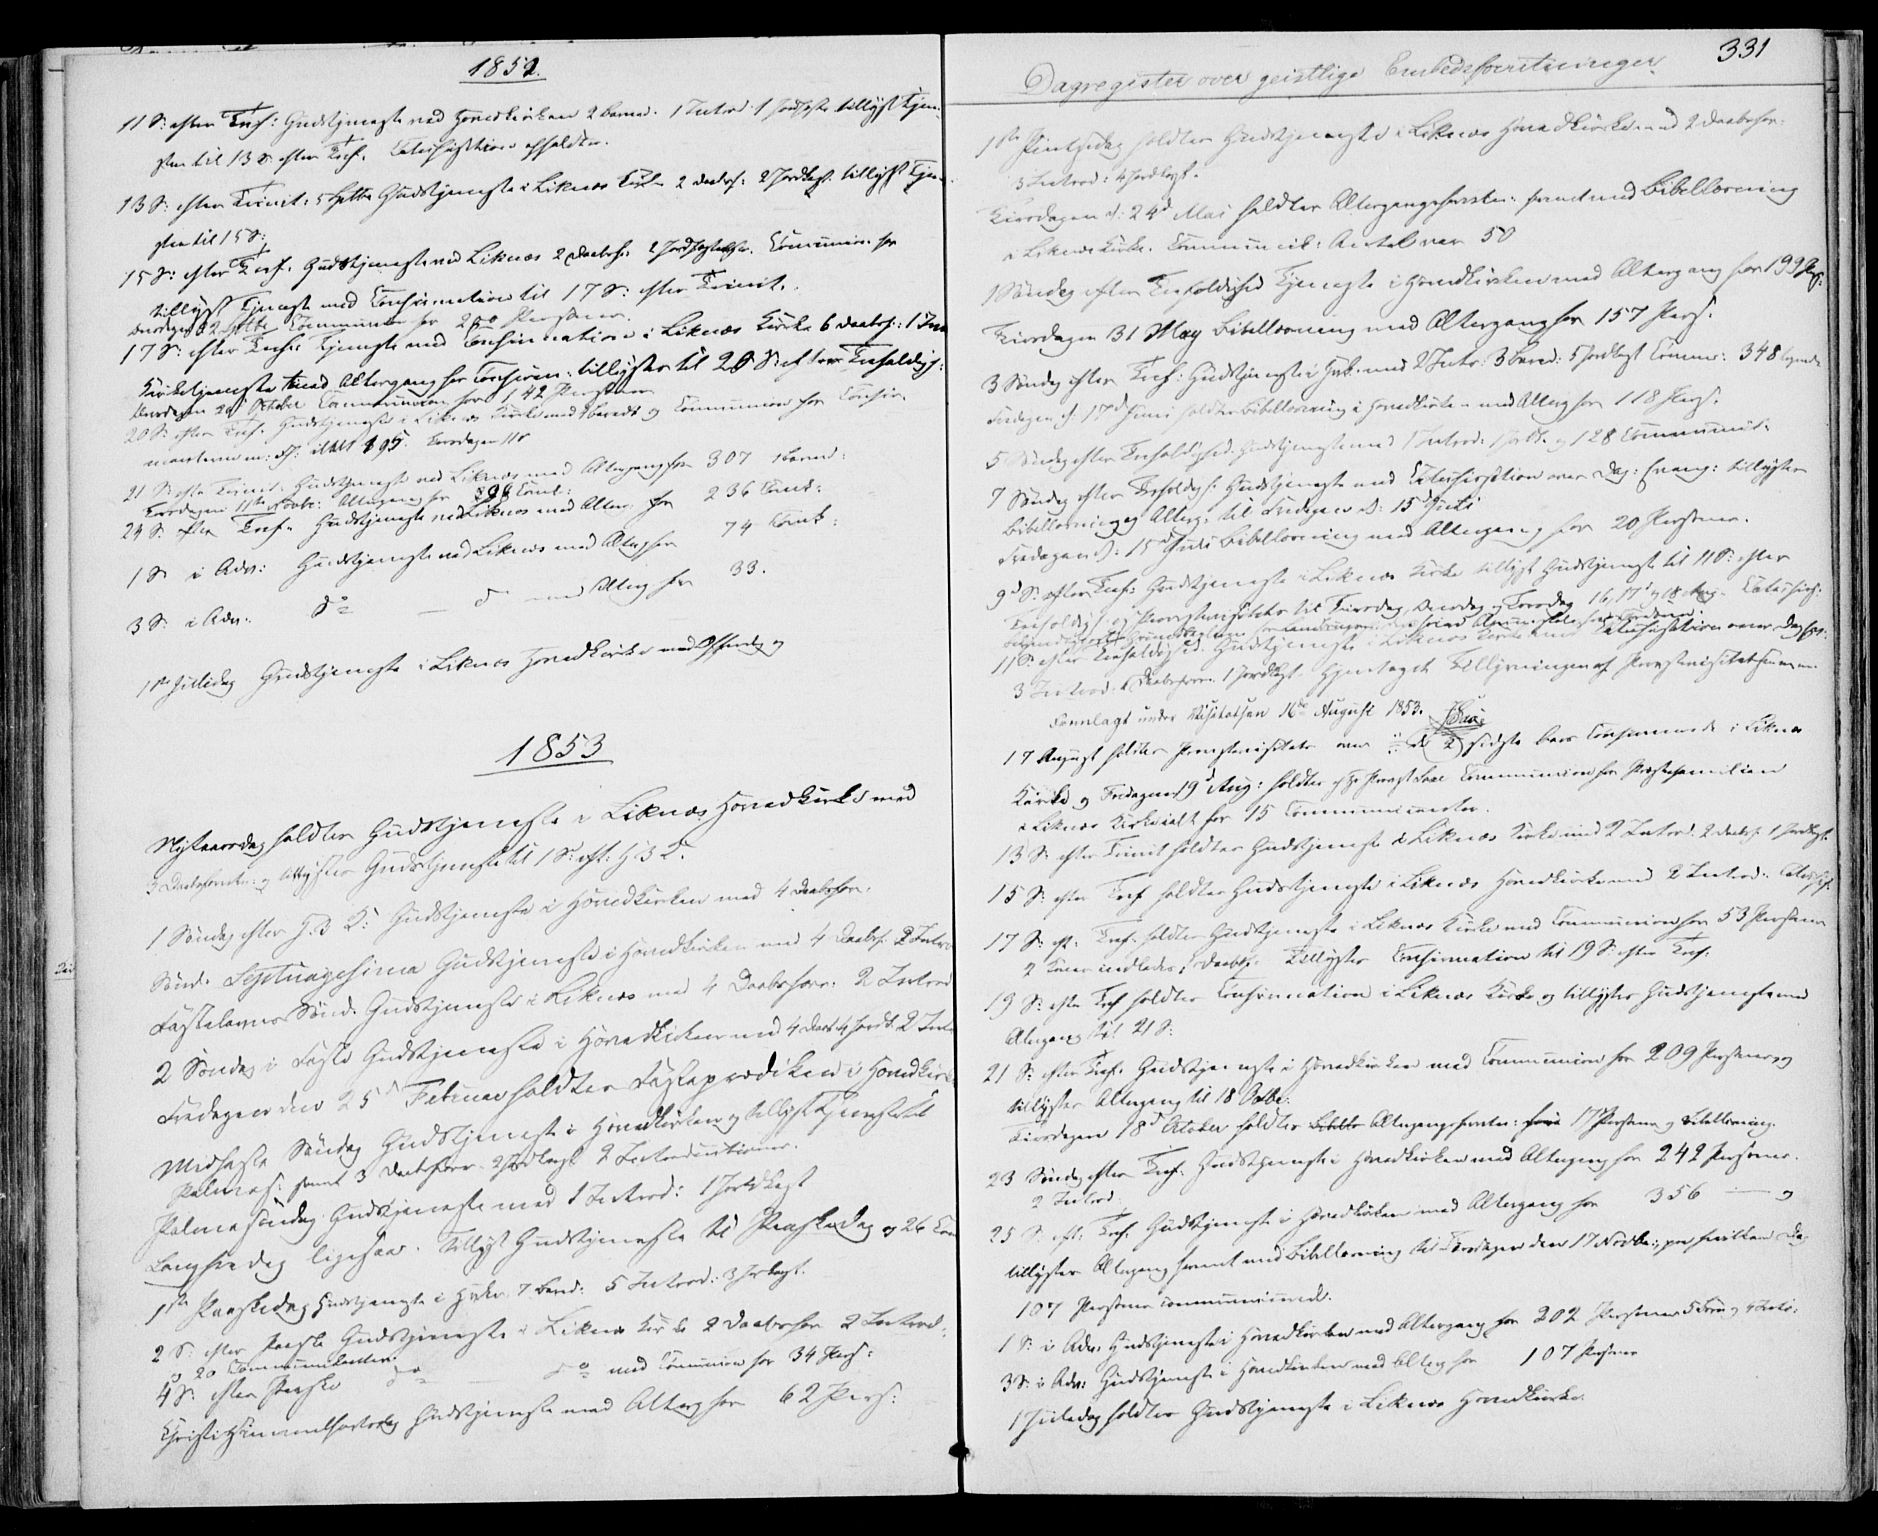 1852.
11 S: efter Tref: Gudstjeneste ved Hovedkirken 2 barned. 1 Introd. 1 Jordfæst. tillyst Tjene-
sten til 13 S. efter Tref. Catechisation afholdtes.
13 S: efter Trinit: 5 Septbr Gudstjeneste i Liknæs Kirke 2 Daabsf: 2 Jordkast. tillyst Tjene-
sten til 15 S:
15 S: efter Tref. Gudstjeneste ved Liknæs 2 Daabsf: 2 Jordfæstelser. Communion for
tillyst Tjeneste med Confirmation til 17 S: efter Trinit.
Communion for 200 Personer.
17 S: efter Tref: Tjeneste med Confirmation i Liknæs Kirke 6 Daabsf: 1 Intr
Kirketjeneste med Altergang for Confirm: tillystes til 20 S: efter Trefoldigh:
Onsdagen 20 October Communion for 142 Personer
20 S: efter Tref. Gudstjeneste i Liknæs Kirke med Communion for Confir.
manterne m: fl: ialt 195. Torsdagen 11te
21 S: efter Trinit: Gudstjeneste ved Liknæs med Altergang for 307 1 barned:
Torsdagen 11te Novbr: Altergang for Comt:
24 S: efter Tref. Gudstjeneste ved Liknæs med Alterg. for 236 Comt:
1 S: i Adv: Gudstjeneste ved Liknæs med Alterg for 74 Comt:
3 S: i Adv: do — do med Alterg for 33.
1ste Juledag Gudstjeneste i Liknæs Hovedkirke med Offerdag og
1853
Nytaarsdag holdtes Gudstjeneste i Liknæs Hovedkirke med
3 Daabsforretn: og tillystes Gudstjeneste til 1 S: eft: H 3 K.
1 Søndag efter H. 3 K: Gudstjeneste i Hovedkirken med 4 Daabsforr.
Sønd. Septuagesima Gudstjeneste i Hovedkirken med 4 Daabsf. 2 Introd
Fastelavns Sønd. Gudstjeneste i Liknæs med 4 Daabsforr. 2 Introd
2 Søndag i Faste Gudstjeneste i Hovedkirken med 4 Daabs 4 Jordk. 2 Intr
Fredagen den 25d Februar holdtes Fasteprædiken i Hovedkirk
Midfaste Søndag Gudstjeneste i Hovedkirken og tillyst Tjeneste til
Palmes: samt 3 Daabsforr. 2 Jordkast 2 Introductioner.
Palmesøndag Gudstjeneste med 1 Introd: 1 Jordkast
Langfredag ligesaa. tillyst Gudstjeneste til Paaskedag og 26 Com
1ste Paaskedag Gudstjeneste i Hvkr. 7 barned: 5 Introd: 3 Jordkast.
2 S. efter Paaske Gudstjeneste i Liknæs Kirke 2 Daabsforr 2 Introd.
og 20 Communikanter.
4 S: efter Paaske do — do med Communion for 34 Pers:
Christi Himmelfartsdag Gudstjeneste med Alterg for 62 Pers:
331
Dagregister over geistlige Embedsforretninger.
1ste Pintsedag holdtes Gudstjeneste i Liknæs Hovedkirke med 2 Daabsfor:
5 Introd: 4 Jordkast.
Tirsdagen d: 24d Mai holdtes Altergangsforretn: samt med Bibellæsning
i Liknæs Kirke. Communik: Antal var 50
1 Søndag efter Trefoldighed Tjeneste i Hovedkirken med Altergang for 199 Pers:
Tirsdagen 31 May Bibellæsning med Altergang for 157 Pers:
3 Søndag efter Tref: Gudstjeneste i Hvk. med 2 Intr: 3 barned: 5 Jordkast Commu: 348
Fredagen d. 17d Juni holdtes Bibellæsning i Hovedkirken med Alterg for 118 Pers:
5 Søndag efter Trefoldighed. Gudstjeneste med 1 Introd: 1 Jordk. og 128 Communik:
7 Søndag efter Trefoldigh: Gudstjeneste med Catechisation over Dag: Evang: tillystes
Bibellæsning og Alterg. til Fredagen d: 15d Juli
Fredagen d: 15d Juli Bibellæsning med Altergang for 20 Personer.
9d S. efter Tref: Gudstjeneste i Liknæs Kirke tillyst Gudstjeneste til 11 S: efter
Trefoldigh. og Provstevisitats til Tirsdag, Onsdag og Torsdag 16, 17d og 18 Aug. Catechis:
11 S: efter Trefoldighed: Gudstjeneste i Liknæs Kirke med Catechisation over Dag: Ev:
3 Introd: Daabsforr. 1 Jordkast. Gjentaget Tillysningen af Provstevisitatsen
Fremlagt under Visitatsen 16de August 1853.
17 August holdtes Provstevisitats over de 2 sidste Aars Confirmerede i Liknæs
Kirke og Fredagen 19d Aug: holdtes af Hr Provst Communion for Præstefamilien
i Liknæs Kirke ialt for 15 Communicanter.
13 S: efter Trinit holdtes Gudstjeneste i Liknæs Kirke med 2 Introd. 2 Daabsf. 1 Jordkast.
15 S: efter Tref holdtes Gudstjeneste i Liknæs Hovedkirke med 2 Introd: Catechis.
17 S: eft. Tref. holdtes Gudstjeneste i Liknæs Kirke med Communion for 53 Personer
2 Koner indledes, Daabsf. Tillystes Confirmation til 19 S: efter Tref.
19 S: efter Tref holdtes Confirmation i Liknæs Kirke, og tillystes Gudstjeneste med
Altergang til 21 S:
21 S: efter Tref: Gudstjeneste i Hovedkirken med Communion for 209 Personer og
tillystes Altergang til 18 Octbr.
Tirsdagen 18d October holdtes Altergangsforretn: for 17 Personer og Bibellæsning.
23 Søndag efter Tref. Gudstjeneste i Hovedkirken med Altergang for 242 Personer.
2 Introd.
25 S: eft. Tref. Gudstjeneste i Hovedkirken med Altergang for 356 — og
tillystes Altergang samt med Bibellæsning til Torsdagen den 17 Novbr:, paa hvilken Dag
107 Personer communicerede.
1 S: i Adv. Gudstjeneste i Hovedkirken med Altergang for 202 Personer 5 og 4 Intr:
3 S: i Adv: Gudstjeneste i Hovedkirken med Alterg for 107 Personer
1 Juledag holdtes Gudstjeneste i Liknæs Hovedkirke.